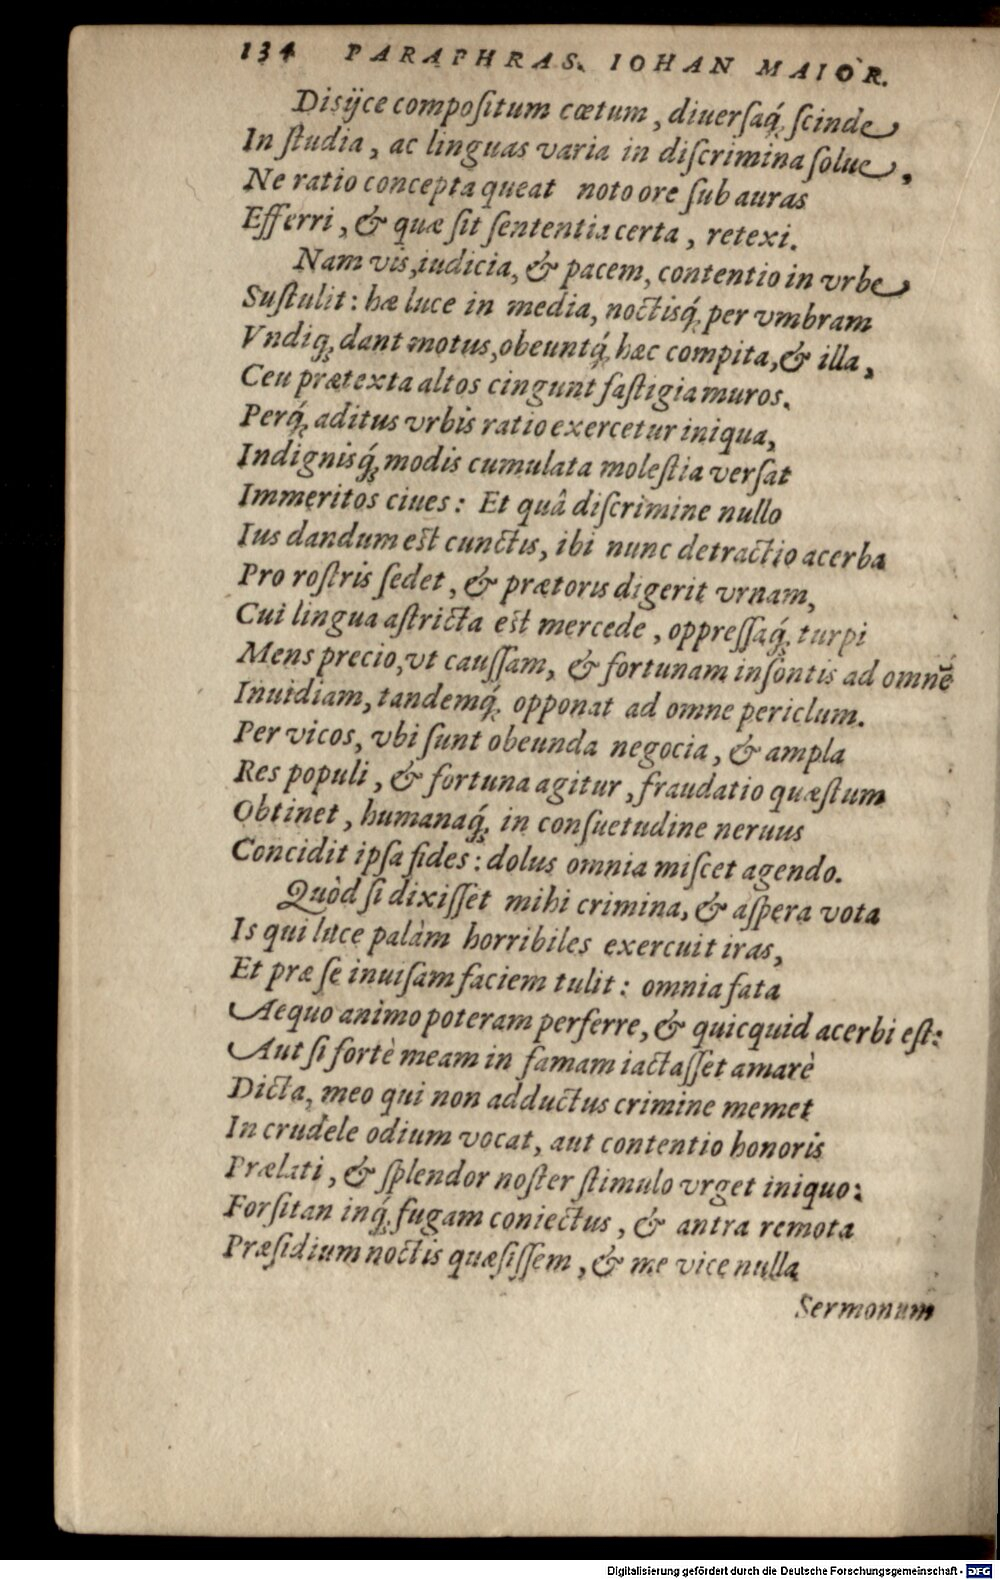 134 PARAPHRAS. IOHAN MAIOR.
Disijce compositum cœtum, diuersaq́; scinde
In studia, ac linguas varia in discrimina solue,
Ne ratio concepta queat noto ore sub auras
Efferri, & quæ sit sententia certa, retexi.
Nam vis, iudicia, & pacem, contentio in vrbe
Sustulit: hæ luce in media, noctisq́; per vmbram
Vndiq; dant motus, obeuntq́; hæc compita, & illa,
Ceu prætexta altos cingunt fastigia muros.
Perq́; aditus vrbis ratio exercetur iniqua,
Indignisq́; modis cumulata molestia versat
Immeritos ciues: Et quâ discrimine nullo
Ius dandum est cunctis, ibi nunc detractio acerba
Pro rostris sedet, & prætoris digerit vrnam,
Cui lingua astricta est mercede, oppressaq́; turpi
Mens precio, vt caussam, & fortunam insontis ad omnē
Inuidiam, tandemq́; opponat ad omne periclum.
Per vicos, vbi sunt obeunda negocia, & ampla
Res populi, & fortuna agitur, fraudatio quæstum
Obtinet, humanaq́; in consuetudine neruus
Concidit ipsa fides: dolus omnia miscet agendo.
Quòd si dixisset mihi crimina, & aspera vota
Is qui luce palàm horribiles exercuit iras,
Et præ se inuisam faciem tulit: omnia fata
Aequo animo poteram perferre, & quicquid acerbi est:
Aut si fortè meam in famam iactasset amarè
Dicta, meo qui non adductus crimine memet
In crudele odium vocat, aut contentio honoris
Prælati, & splendor noster stimulo vrget iniquo:
Forsitan inq́; fugam coniectus, & antra remota
Præsidium noctis quæsissem, & me vice nulla
Sermonum
Digitalisierung gefördert durch die Deutsche Forschungsgemeinschaft - DFG